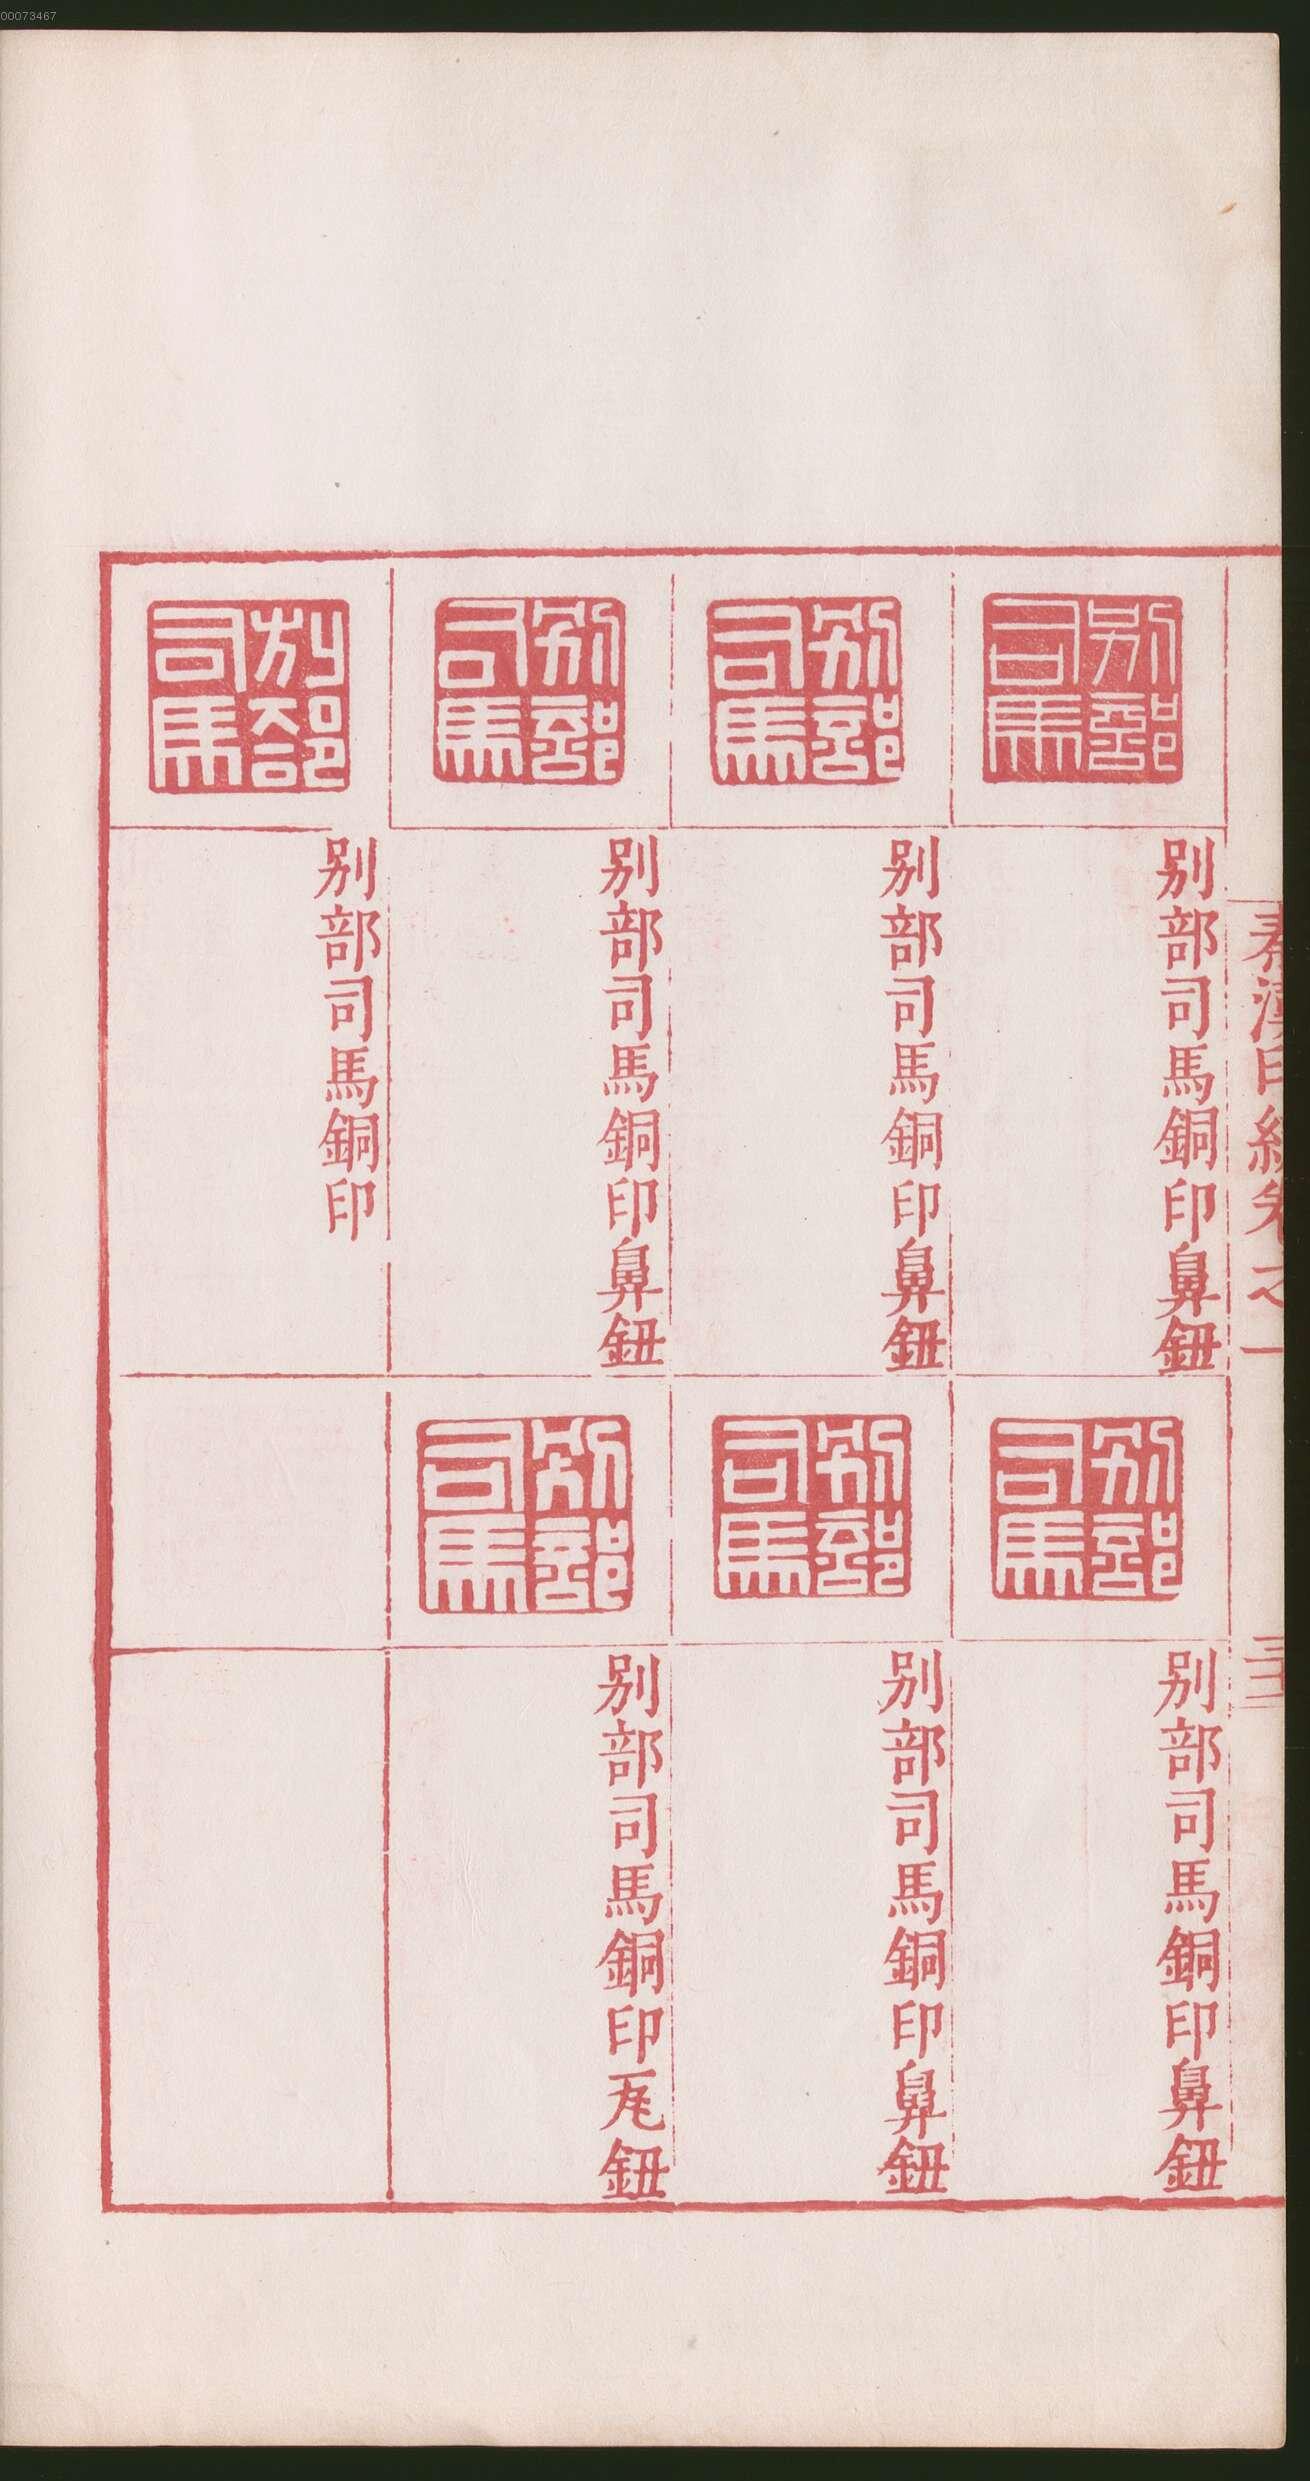 00073467
秦漢印統卷之一
別部司馬
別部司馬銅印鼻鈕
別部司馬
別部司馬銅印鼻鈕
別部司馬
別部司馬銅印鼻鈕
別部司馬
別部司馬銅印
別部司馬
別部司馬銅印鼻鈕
別部司馬
別部司馬銅印鼻鈕
別部司馬
別部司馬銅印瓦鈕